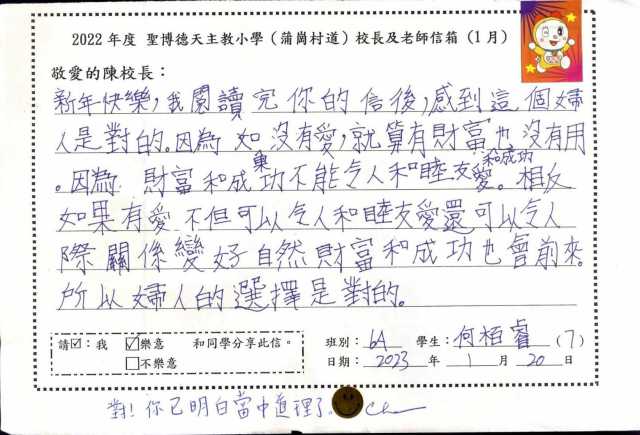 2022 年度 聖博德天主教小學（蒲崗村道）校長及老師信箱（1 月）
敬愛的陳校長：
新年快樂，我閱讀完你的信後，感到這個婦
人是對的。因為如沒有愛，就算有財富也沒有用
。因為財富和成功不能令人和睦友愛和成功。相反
如果有愛不但可以令人和睦友愛還可以令人
際關係變好自然財富和成功也會前來。
所以婦人的選擇是對的。
請☑：我 ☑樂意 和同學分享此信。
□不樂意
班別：6A 學生：何栢睿（7）
日期：2023 年 1 月 20 日
對！你已明白當中道理了。